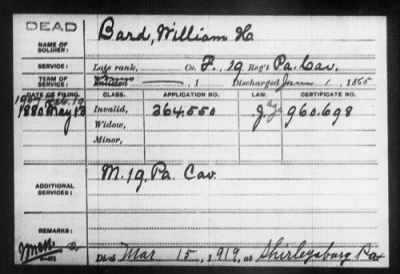 DEAD
NAME OF SOLDIER: Bard, William H
SERVICE: Late rank, Co. F, 19 Reg't Pa. Cav.
TERM OF SERVICE: Enlisted , 1 Discharged June 1, 1865
DATE OF FILING. CLASS. APPLICATION NO. LAW. CERTIFICATE NO.
1907 Feb. 19
1880 May 13 Invalid, 364.550 960.698
Widow,
Minor,
ADDITIONAL SERVICES: M. 19. Pa Cav.
REMARKS:
Died Mar 15, 1919, at Shirleysburg Pa